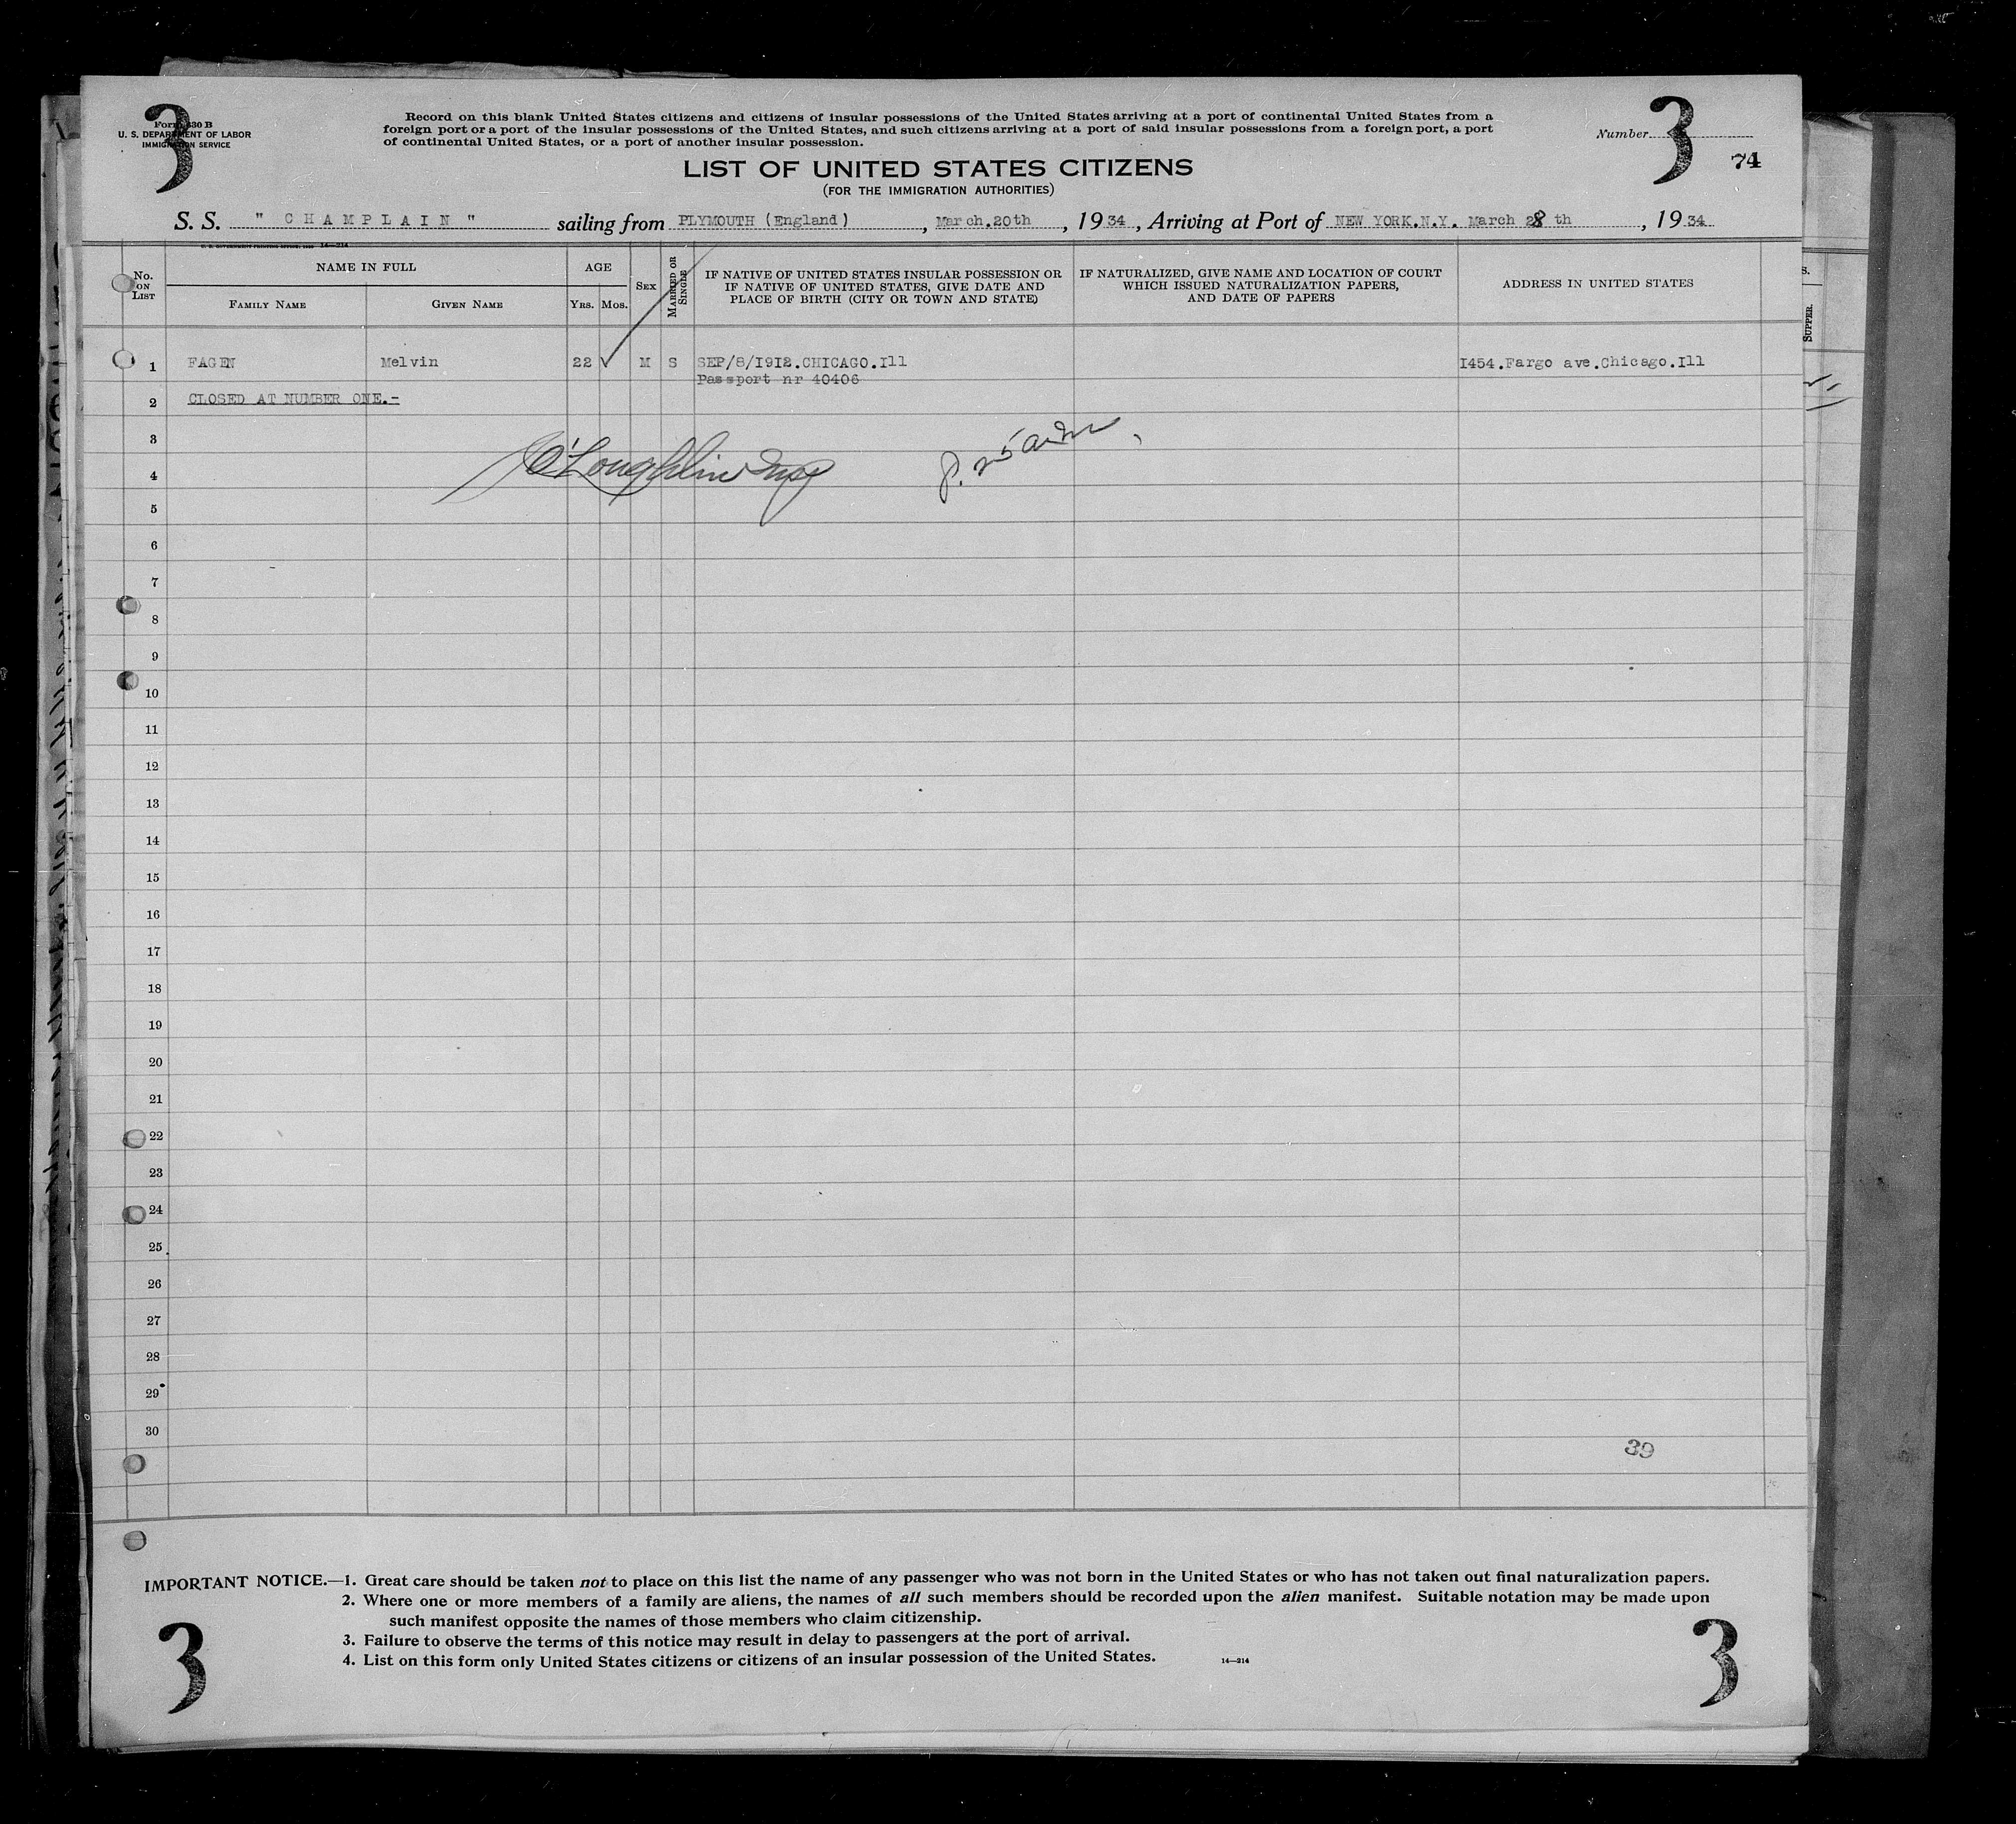 3
3
Form 630 B
U. S. DEPARTMENT OF LABOR
IMMIGRATION SERVICE
Record on this blank United States citizens and citizens of insular possessions of the United States arriving at a port of continental United States from a
foreign port or a port of the insular possessions of the United States, and such citizens arriving at a port of said insular possessions from a foreign port, a port
of continental United States, or a port of another insular possession.
Number
74
LIST OF UNITED STATES CITIZENS
(FOR THE IMMIGRATION AUTHORITIES)
S. S. " CHAMPLAIN " sailing from PLYMOUTH (England) , March.20th , 1934 , Arriving at Port of NEW YORK.N.Y. March 28 th , 1934
14—214
No. ON LIST
NAME IN FULL
FAMILY NAME
GIVEN NAME
AGE
YRS. MOS.
SEX
MARRIED OR SINGLE
IF NATIVE OF UNITED STATES INSULAR POSSESSION OR
IF NATIVE OF UNITED STATES, GIVE DATE AND
PLACE OF BIRTH (CITY OR TOWN AND STATE)
IF NATURALIZED, GIVE NAME AND LOCATION OF COURT
WHICH ISSUED NATURALIZATION PAPERS,
AND DATE OF PAPERS
ADDRESS IN UNITED STATES
S.
SUPPER.
1 FAGEN Melvin 22 M S SEP/8/1912.CHICAGO.Ill 1454.Fargo ave.Chicago.Ill
Passport nr 40406
2 CLOSED AT NUMBER ONE.-
3
4 O'Loughlin Insp
5
6
7
8
9
10
11
12
13
14
15
16
17
18
19
20
21
22
23
24
25
26
27
28
29
30
39
IMPORTANT NOTICE.—1. Great care should be taken not to place on this list the name of any passenger who was not born in the United States or who has not taken out final naturalization papers.
2. Where one or more members of a family are aliens, the names of all such members should be recorded upon the alien manifest. Suitable notation may be made upon
such manifest opposite the names of those members who claim citizenship.
3. Failure to observe the terms of this notice may result in delay to passengers at the port of arrival.
4. List on this form only United States citizens or citizens of an insular possession of the United States.
14—214
3
3